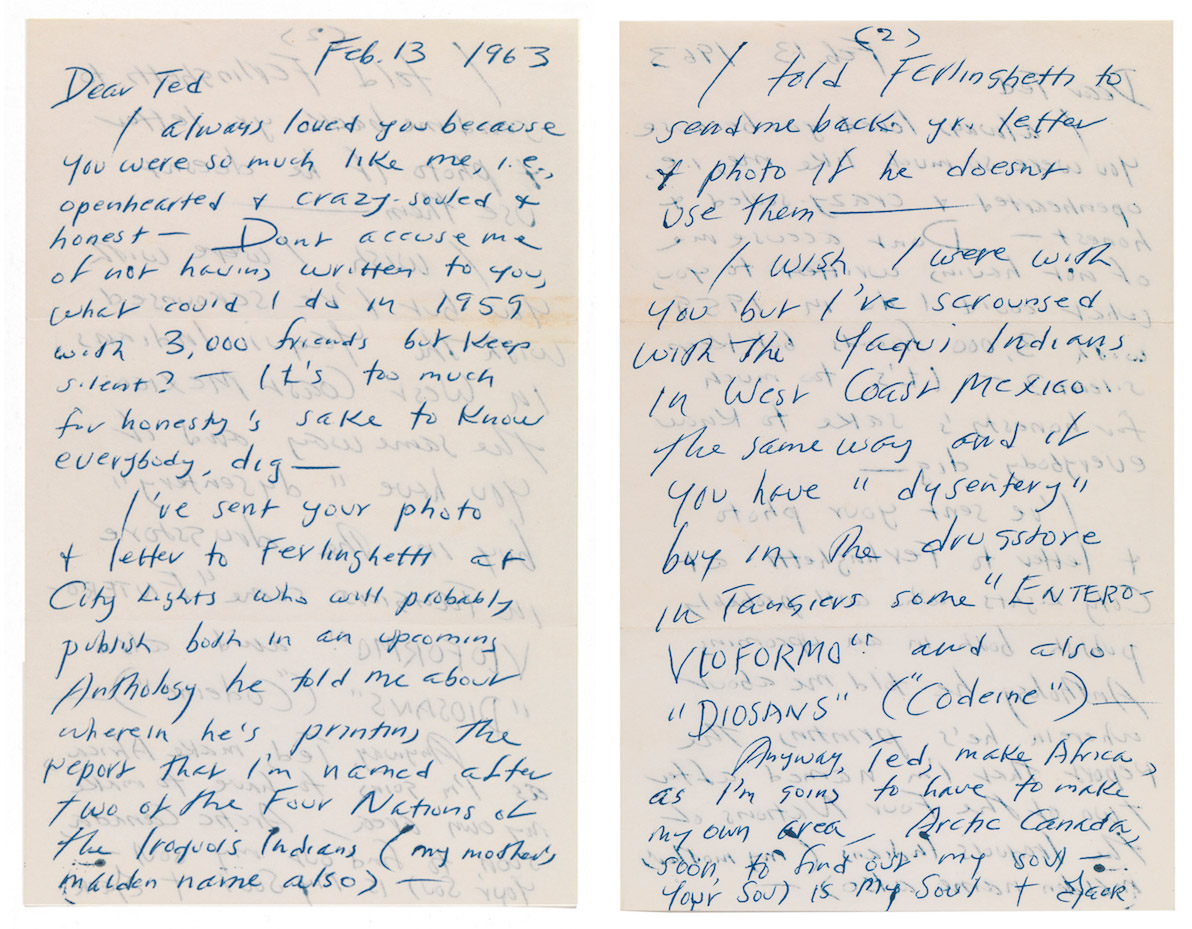 Feb. 13 1963
Dear Ted
I always loved you because
you were so much like me, i.e.,
openhearted & crazy-souled &
honest — Dont accuse me
of not having written to you,
what could I do in 1959
with 3,000 friends but keep
silent? — It's too much
for honesty's sake to know
everybody, dig —
I've sent your photo
& letter to Ferlinghetti at
City Lights who will probably
publish both in an upcoming
Anthology he told me about
wherein he's printing the
report that I'm named after
two of the Four Nations of
the Iroquois Indians (my mother's
maiden name also) —
(2)
I told Ferlinghetti to
send me back yr. letter
& photo if he doesnt
use them —
I wish I were with
you but I've scrounged
with the Yaqui Indians
in West Coast Mexico
the same way and if
you have "dysentery"
buy in the drugstore
in Tangiers some "ENTERO-
VIOFORMO" and also
"DIOSANS" ("Codeine") —
Anyway, Ted, make Africa,
as I'm going to have to make
my own area, Arctic Canada,
soon, to find out my soul —
Your soul is my soul & Jack